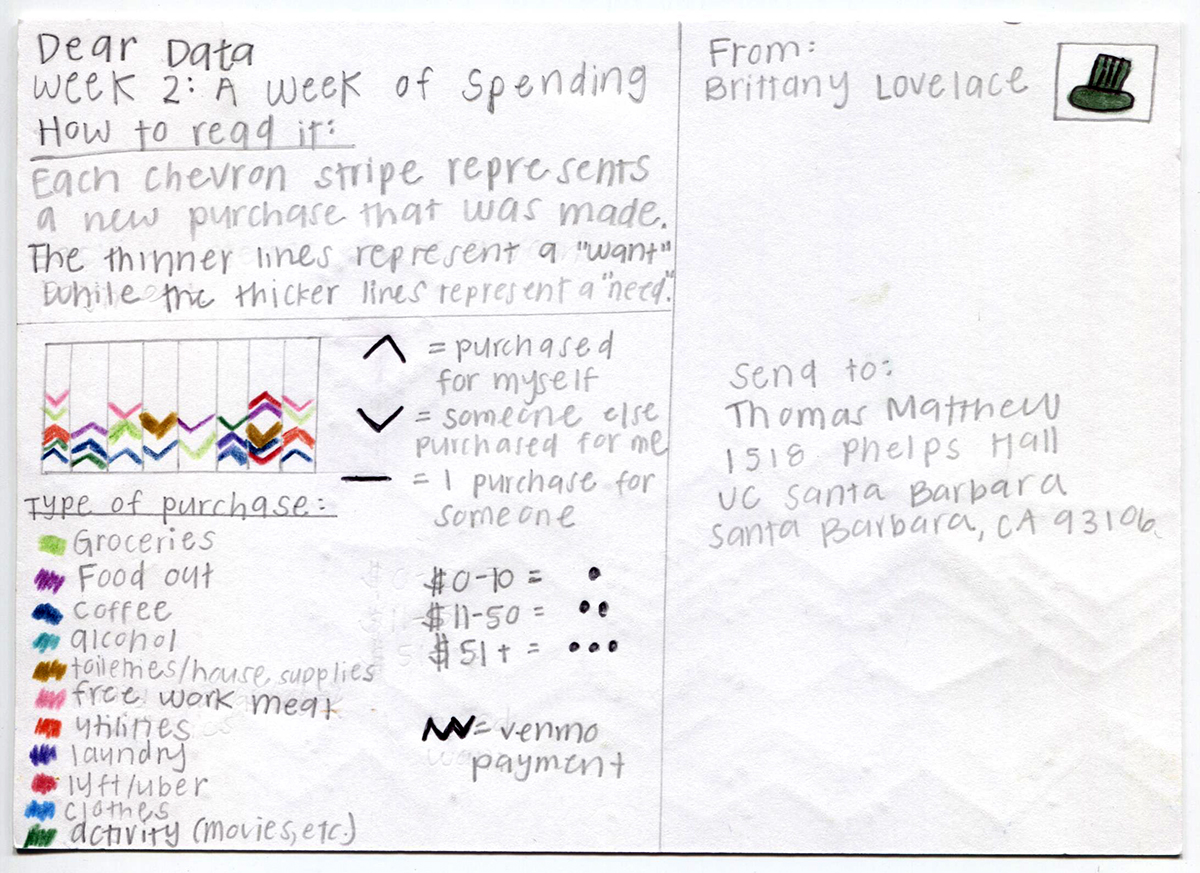 Dear Data
Week 2: A Week of Spending
How to read it:
Each chevron stripe represents
a new purchase that was made.
The thinner lines represent a "want"
while the thicker lines represent a "need".
= purchased
for myself
= someone else
purchased for me
= I purchase for
someone
Type of purchase:
Groceries
Food out
coffee
alcohol
toiletries/house supplies
free work meal
utilities
laundry
lyft/uber
clothes
activity (movies, etc.)
$0-10 =
$11-50 =
$51+ =
= venmo
payment
From:
Brittany Lovelace
Send to:
Thomas Matthew
1518 Phelps Hall
UC Santa Barbara
Santa Barbara, CA 93106